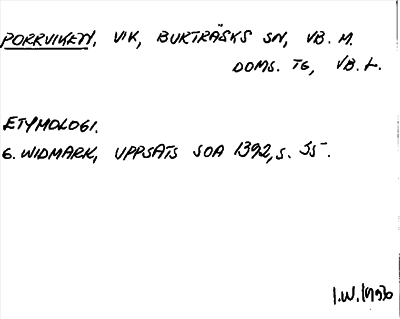 PORRVIKEN, VIK, BURTRÄSKS SN, VB. M.
DOMS. TG, VB. L.
ETYMOLOGI.
G. WIDMARK, UPPSATS SOA 1392, S. 55.
I.W.